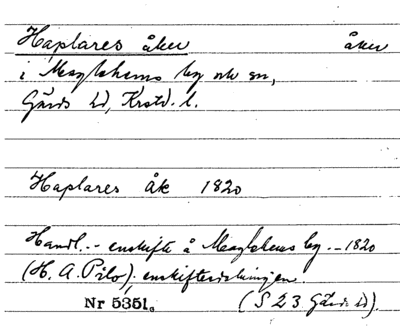 Haplares åker åker
i Maglehems by och sn,
Gärds hd, Krstd. l.
Haplares åk 1820
Handl. -- enskifte å Maglehems by -- 1820
(H. A. Pilo), enskiftesdelningen.
Nr 5351. (S 23 Gärds hd).